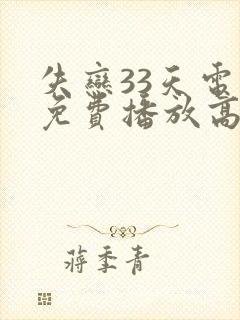 失戀33天電
免費播放高
蔣季青